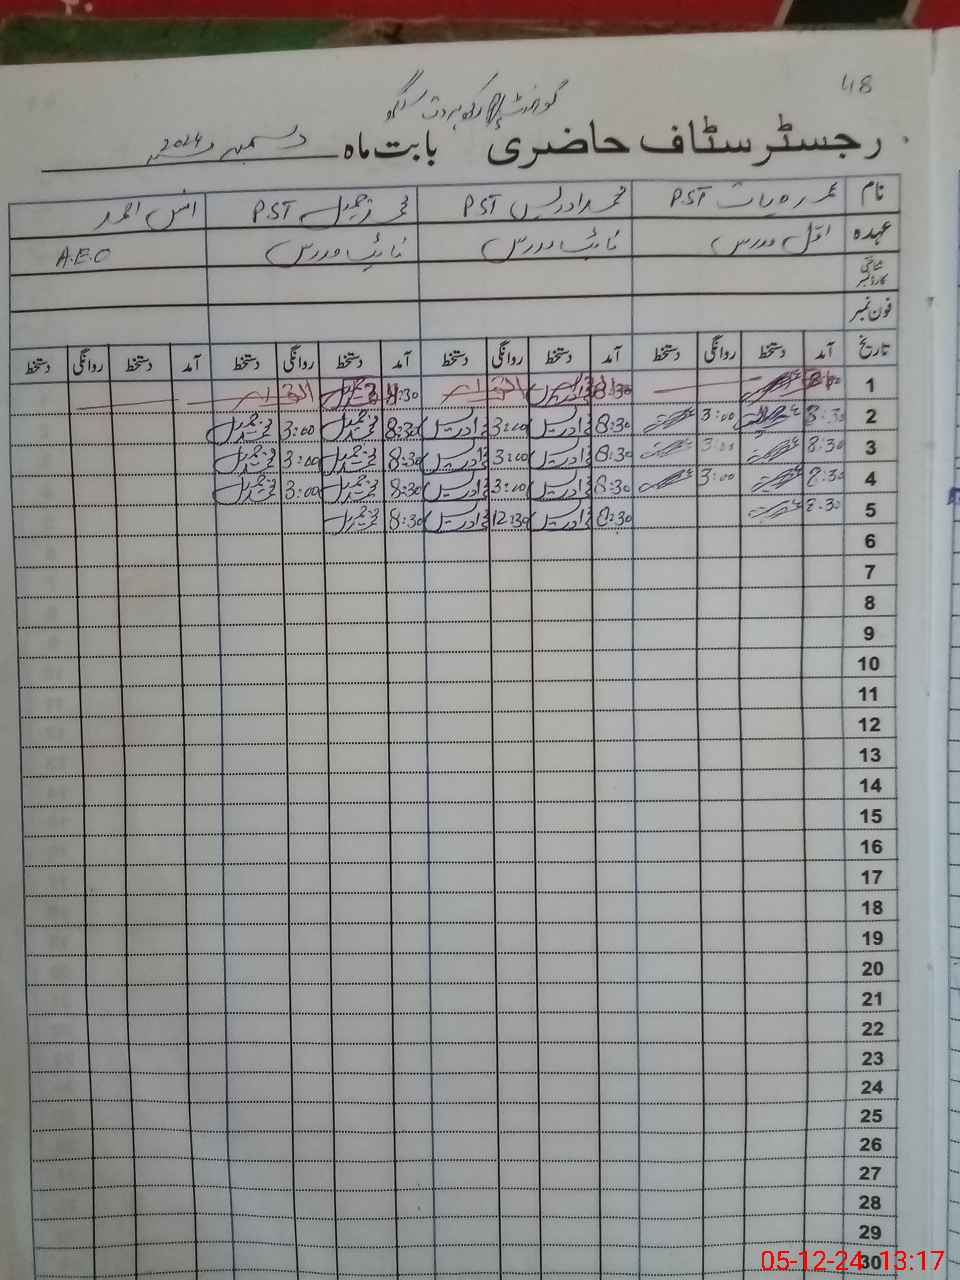 48
گورنمنٹ
رجسٹر سٹاف حاضری بابت ماہ دسمبر 2024
نام عمر حیات P.S.T محمد ادریس P.S.T محمد جمیل P.S.T انس احمد
عہدہ اول مدرس نائب مدرس نائب مدرس A.E.O
شناختی کارڈ نمبر
فون نمبر
تاریخ آمد دستخط روانگی دستخط آمد دستخط روانگی دستخط آمد دستخط روانگی دستخط آمد دستخط روانگی دستخط
1 اتوار 8:30 اتوار
2 8:30 3:00 8:30 ادریس 3:00 ادریس 8:30 محمد جمیل 3:00 محمد جمیل
3 8:30 3:00 8:30 ادریس 3:00 ادریس 8:30 محمد جمیل 3:00 محمد جمیل
4 8:30 3:00 8:30 ادریس 3:00 ادریس 8:30 محمد جمیل 3:00 محمد جمیل
5 8:30 8:30 ادریس 12:30 ادریس 8:30 محمد جمیل
6
7
8
9
10
11
12
13
14
15
16
17
18
19
20
21
22
23
24
25
26
27
28
29
30
05-12-24 13:17